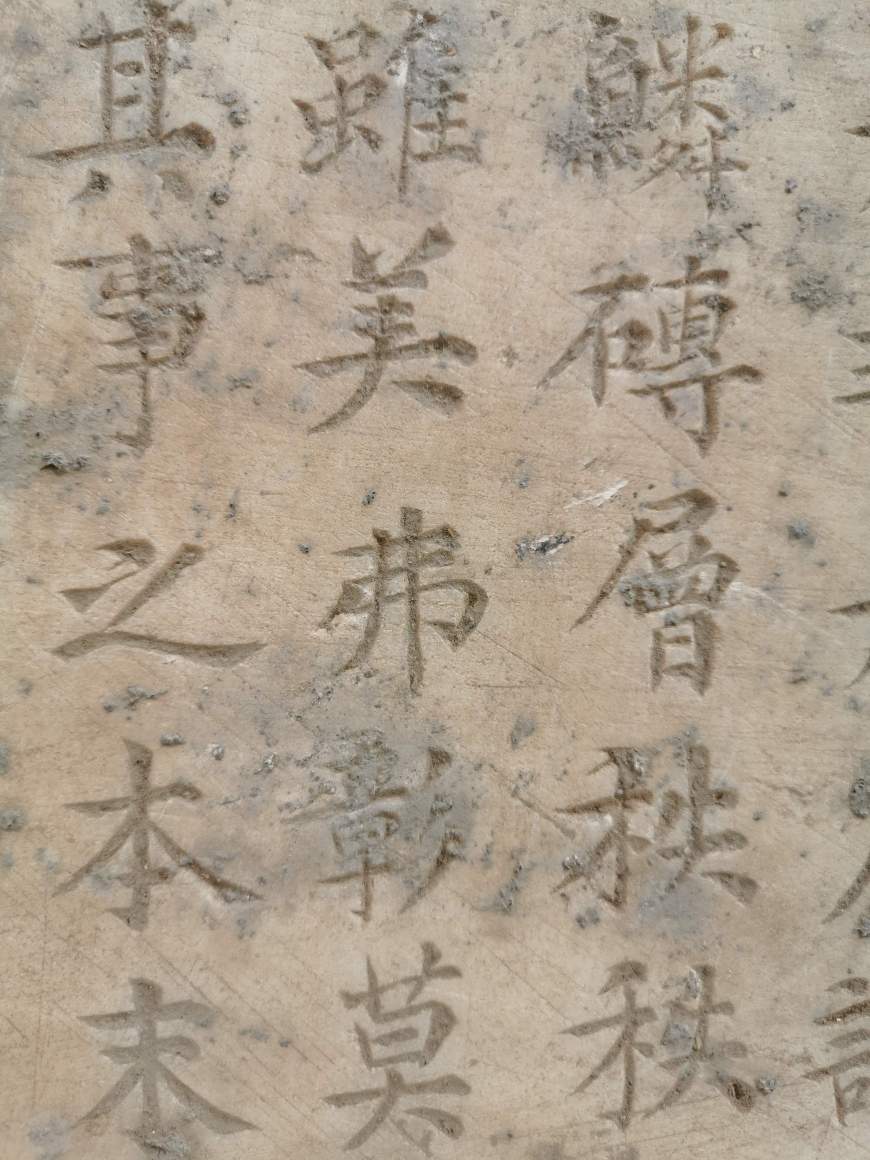 鱗磚層秩秩
雖美弗彰莫
其事之本末